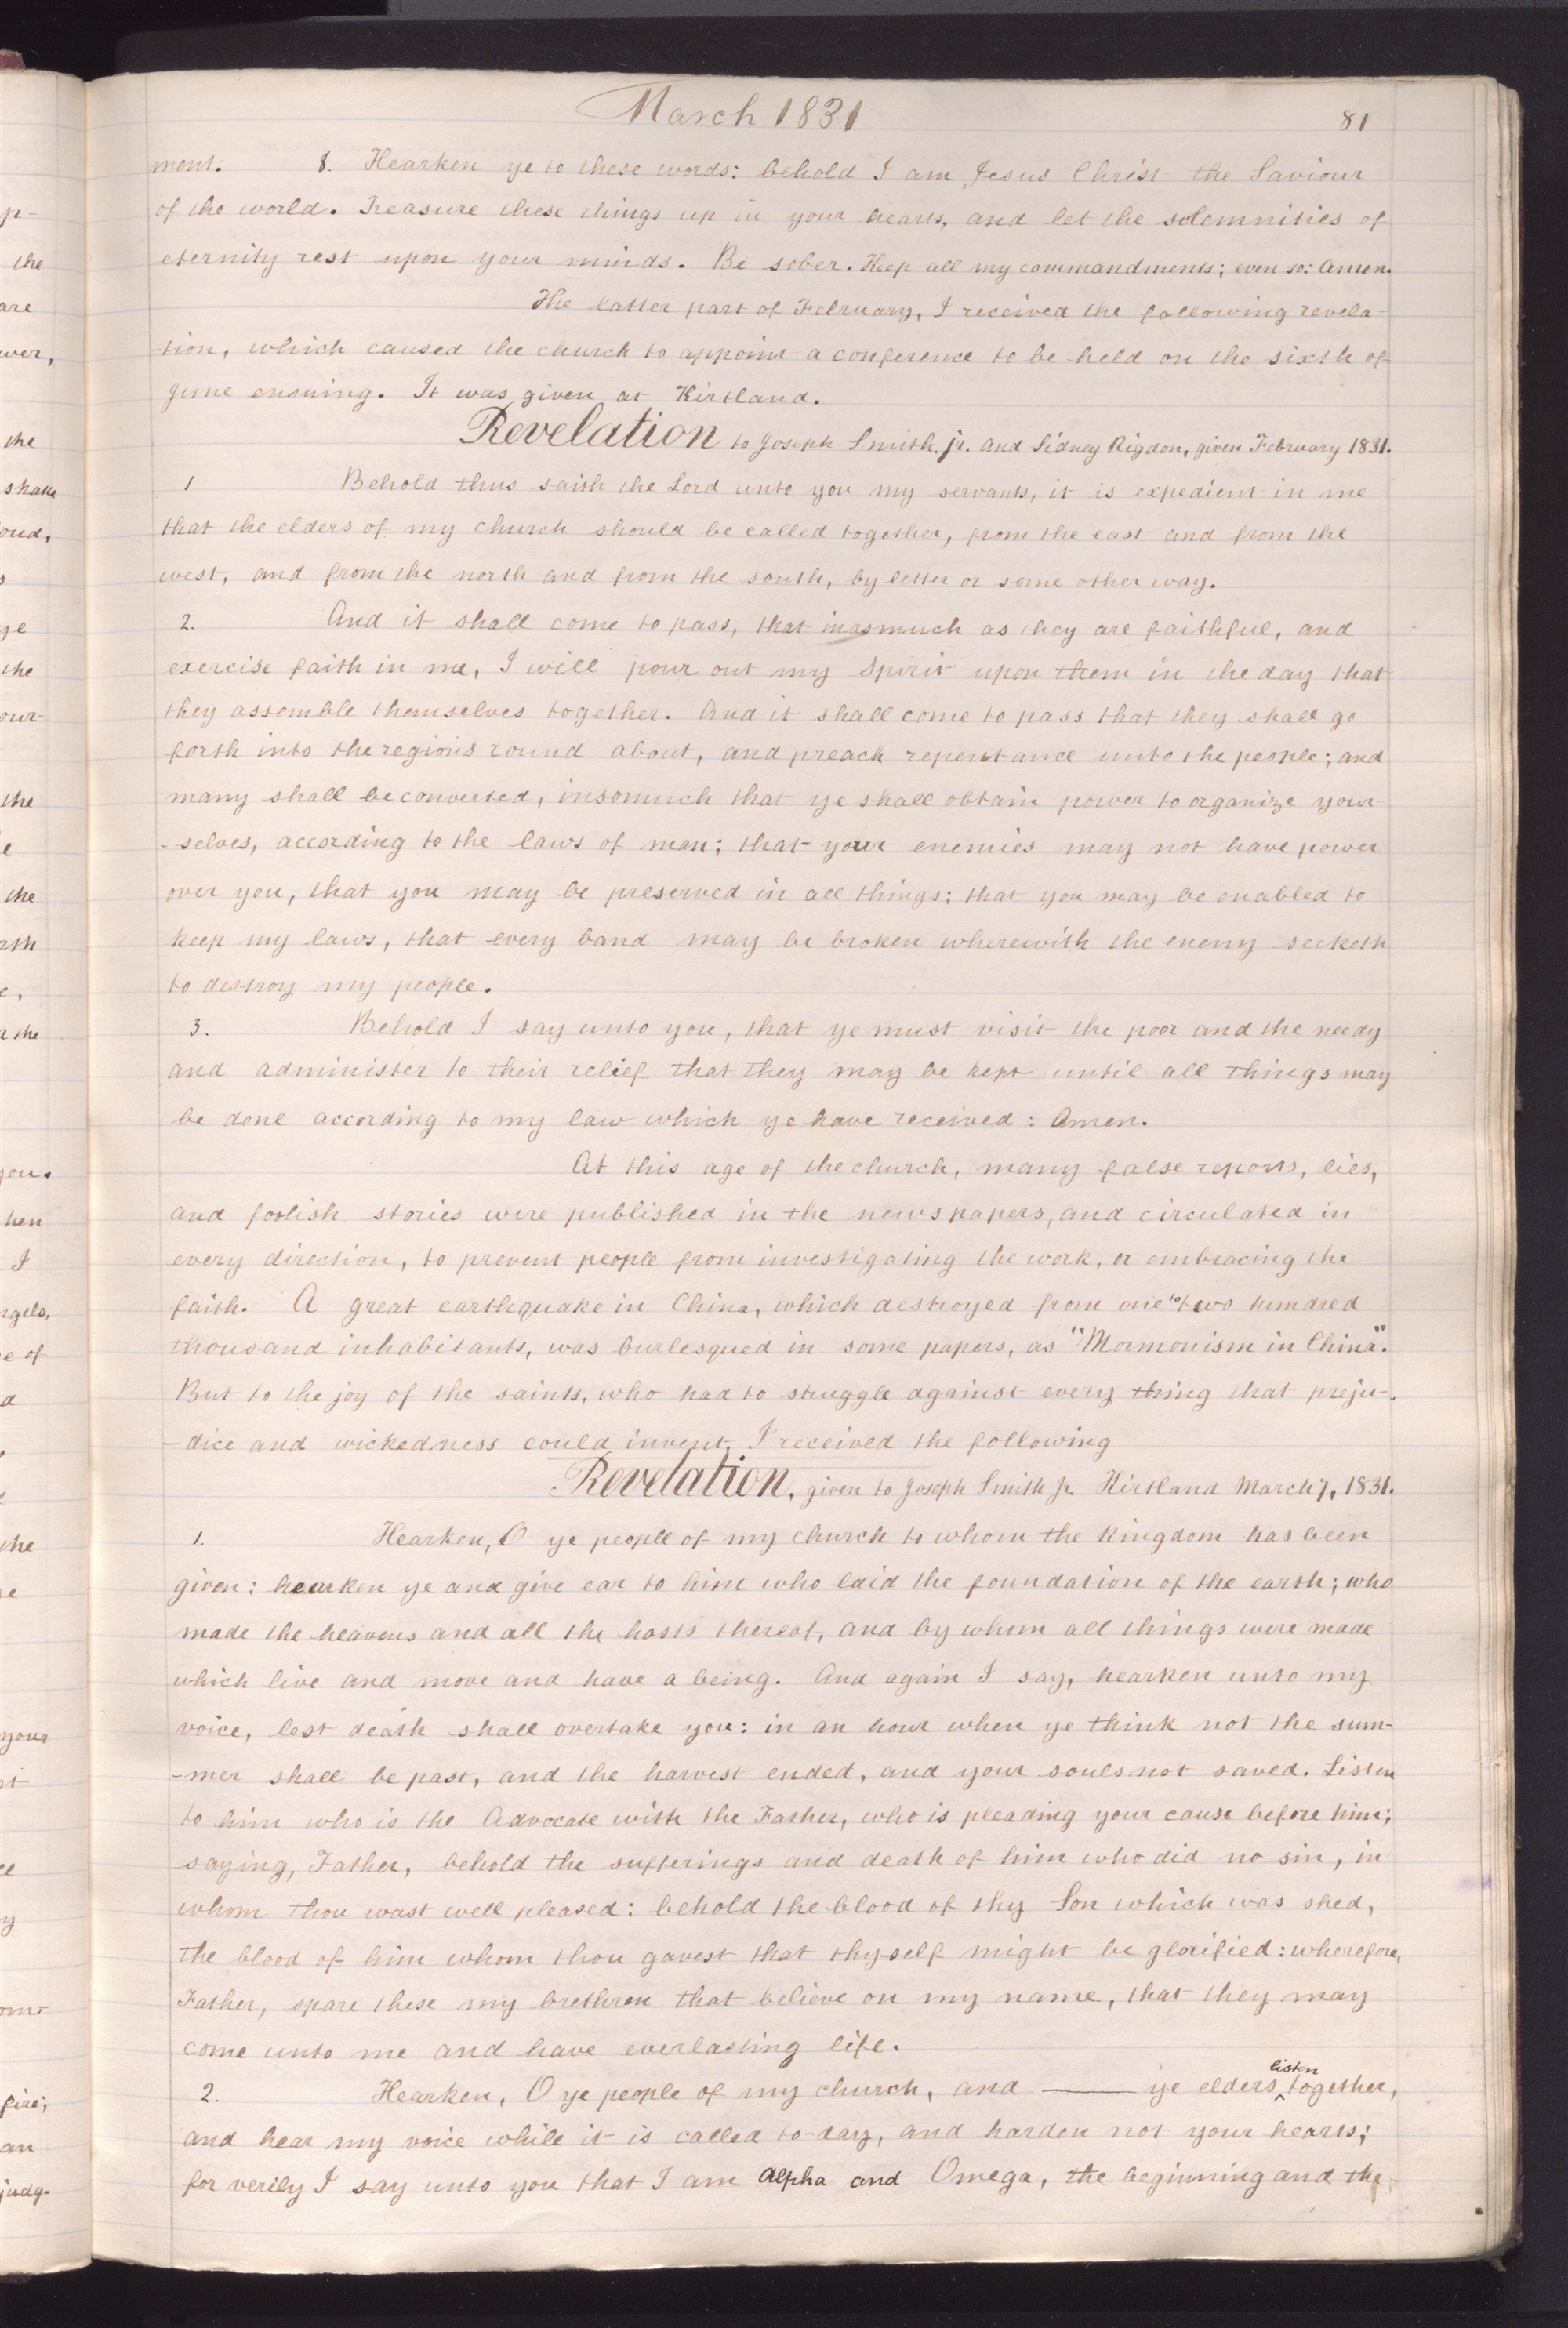 March 1831
81
ment. 8. Hearken ye to these words: behold I am Jesus Christ the Saviour
of the world. Treasure these things up in your hearts, and let the solemnities of
eternity rest upon your minds. Be sober. Keep all my commandments; even so: Amen.
The latter part of February, I received the following revela-
-tion, which caused the church to appoint a conference to be held on the sixth of
June ensuing. It was given at Kirtland.
Revelation to Joseph Smith. jr. and Sidney Rigdon, given February 1831.
1 Behold thus saith the Lord unto you my servants, it is expedient in me
that the elders of my church should be called together, from the east and from the
west, and from the north and from the south, by letter or some other way.
2. And it shall come to pass, that inasmuch as they are faithful, and
exercise faith in me, I will pour out my Spirit upon them in the day that
they assemble themselves together. And it shall come to pass that they shall go
forth into the regions round about, and preach repentance unto the people; and
many shall be converted, insomuch that ye shall obtain power to organize your-
-selves, according to the laws of man; that your enemies may not have power
over you, that you may be preserved in all things; that you may be enabled to
keep my laws, that every band may be broken wherewith the enemy seeketh
to destroy my people.
3. Behold I say unto you, that ye must visit the poor and the needy
and administer to their relief that they may be kept until all things may
be done according to my law which ye have received: Amen.
At this age of the church, many false reports, lies,
and foolish stories were published in the newspapers, and circulated in
every direction, to prevent people from investigating the work, or embracing the
faith. A great earthquake in China, which destroyed from one to two hundred
thousand inhabitants, was burlesqued in some papers, as "Mormonism in China".
But to the joy of the saints, who had to struggle against every thing that preju-
-dice and wickedness could invent, I received the following
Revelation, given to Joseph Smith Jr. Kirtland March 7, 1831.
1. Hearken, O ye people of my church to whom the kingdom has been
given: hearken ye and give ear to him who laid the foundation of the earth; who
made the heavens and all the hosts thereof, and by whom all things were made
which live and move and have a being. And again I say, hearken unto my
voice, lest death shall overtake you: in an hour when ye think not the sum-
-mer shall be past, and the harvest ended, and your souls not saved. Listen
to him who is the Advocate with the Father, who is pleading your cause before him;
saying, Father, behold the sufferings and death of him who did no sin, in
whom thou wast well pleased: behold the blood of thy Son which was shed,
the blood of him whom thou gavest that thyself might be glorified: wherefore,
Father, spare these my brethren that believe on my name, that they may
come unto me and have everlasting life.
2. Hearken, O ye people of my church, and —— ye elders ^listen together,
and hear my voice while it is called to-day, and harden not your hearts;
for verily I say unto you that I am Alpha and Omega, the beginning and the
p-
the
are
wer,
the
shake
oud,
s
ye
the
our
the
e
the
rth
e,
r the
you.
hen
I
ngels,
e of
d
the
e
your
st
ll
y
fire;
an
judg-